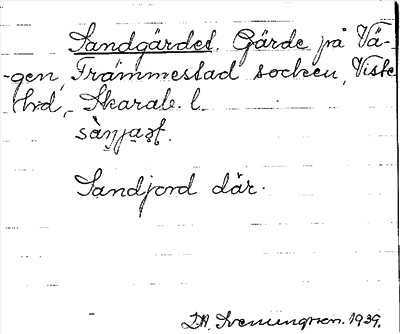 Sandgärdet. Gärde på Vä-
-gen, Främmestad socken, Viste
Hrd, Skarab. l.
Sandjord där.
D.A. Sveningsson. 1939.